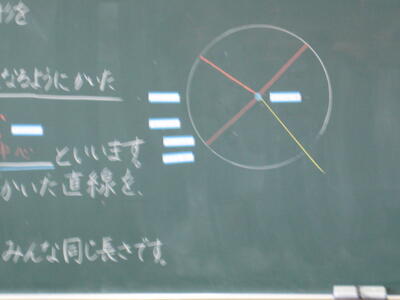 なるようにかいた
中心 といいます。
かいた直線を、
みんな同じ長さです。